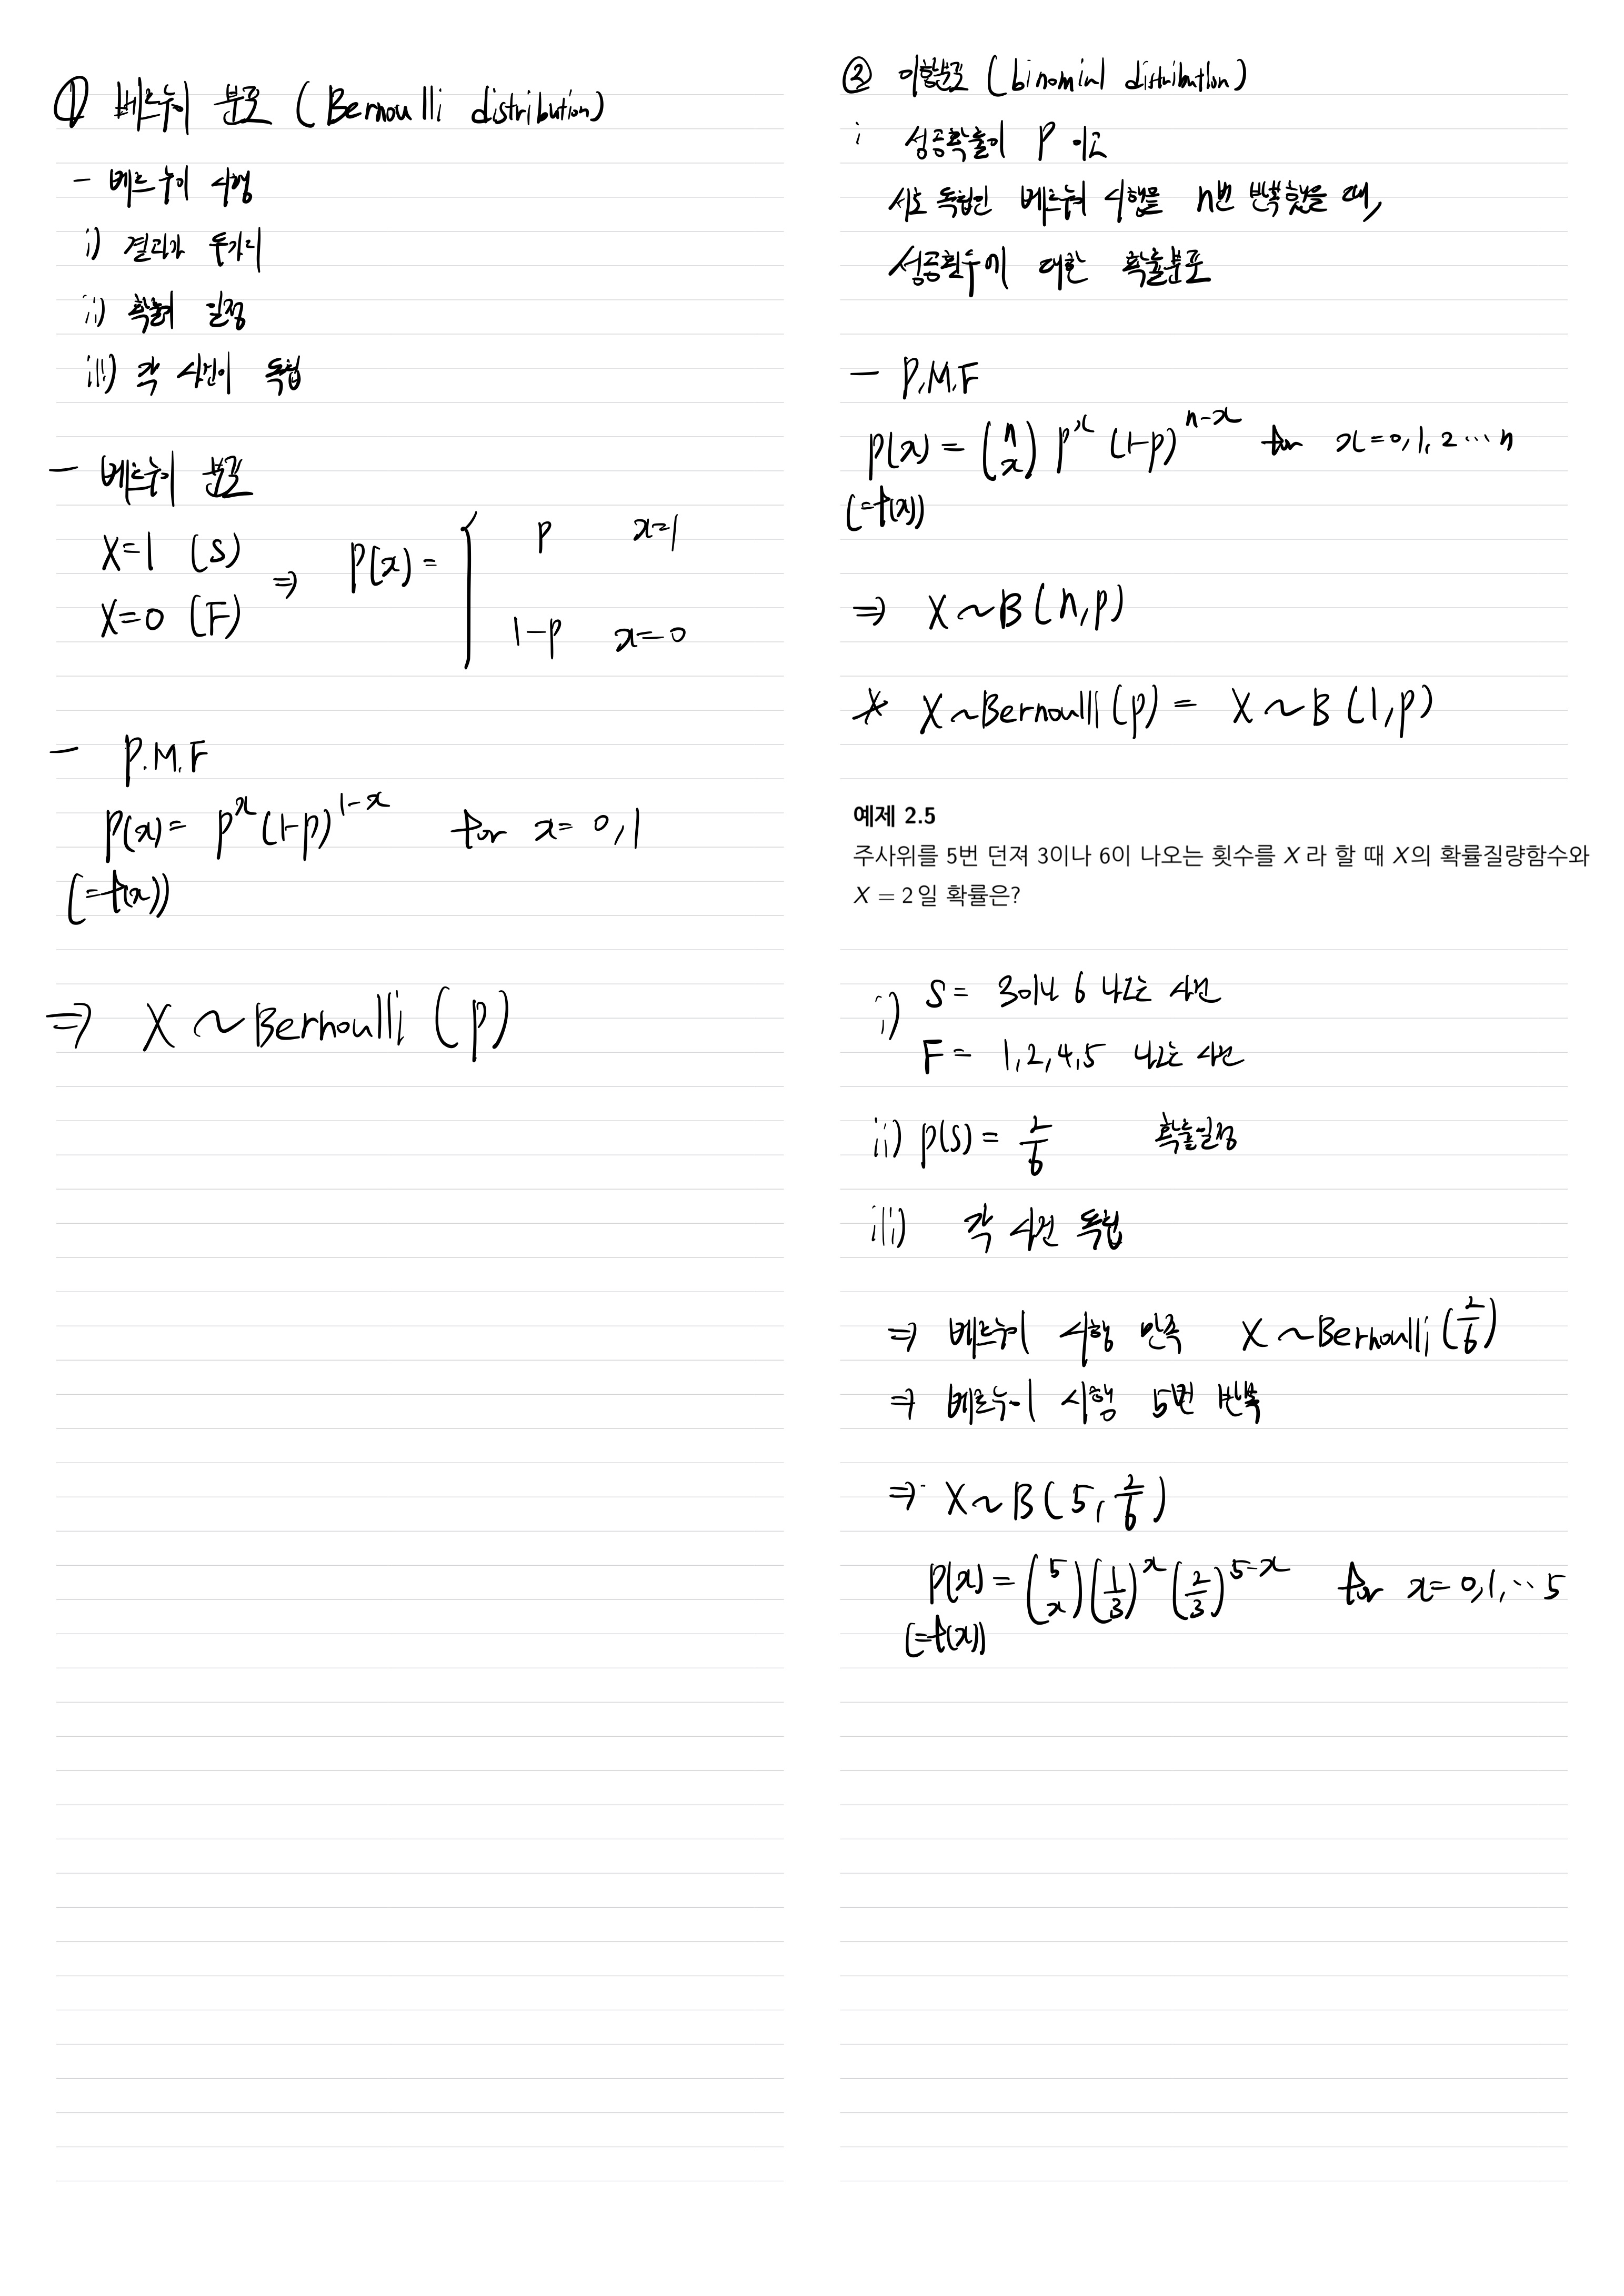 ① 베르누이 분포 (Bernoulli distribution)
- 베르누이 시행
i) 결과가 두가지
ii) 확률이 일정
iii) 각 사건이 독립
- 베르누이 분포
X=1 (S)
X=0 (F)
⇒ P(x) = { p x=1
1-p x=0
- P.M.F
P(x) = p^x (1-p)^{1-x} for x= 0,1
(=f(x))
⇒ X ~ Bernoulli (p)
② 이항분포 (binomial distribution)
i 성공확률이 p 이고
서로 독립인 베르누이 시행을 n번 반복했을 때,
성공횟수에 대한 확률분포
- P.M.F
P(x) = (n x) p^x (1-p)^{n-x} for x=0,1,2 ⋯ n
(=f(x))
⇒ X ~ B (n,p)
* X ~ Bernoulli (p) = X ~ B (1,p)
예제 2.5
주사위를 5번 던져 3이나 6이 나오는 횟수를 X 라 할 때 X의 확률질량함수와
X = 2 일 확률은?
i) S = 3이나 6 나오는 사건
F = 1,2,4,5 나오는 사건
ii) p(S) = 2/6 확률일정
iii) 각 사건 독립
⇒ 베르누이 시행 만족 X ~ Bernoulli (2/6)
⇒ 베르누이 시행 5번 반복
⇒ X ~ B (5, 2/6)
P(x) = (5 x) (1/3)^x (2/3)^{5-x} for x= 0,1, ⋯ 5
(=f(x))